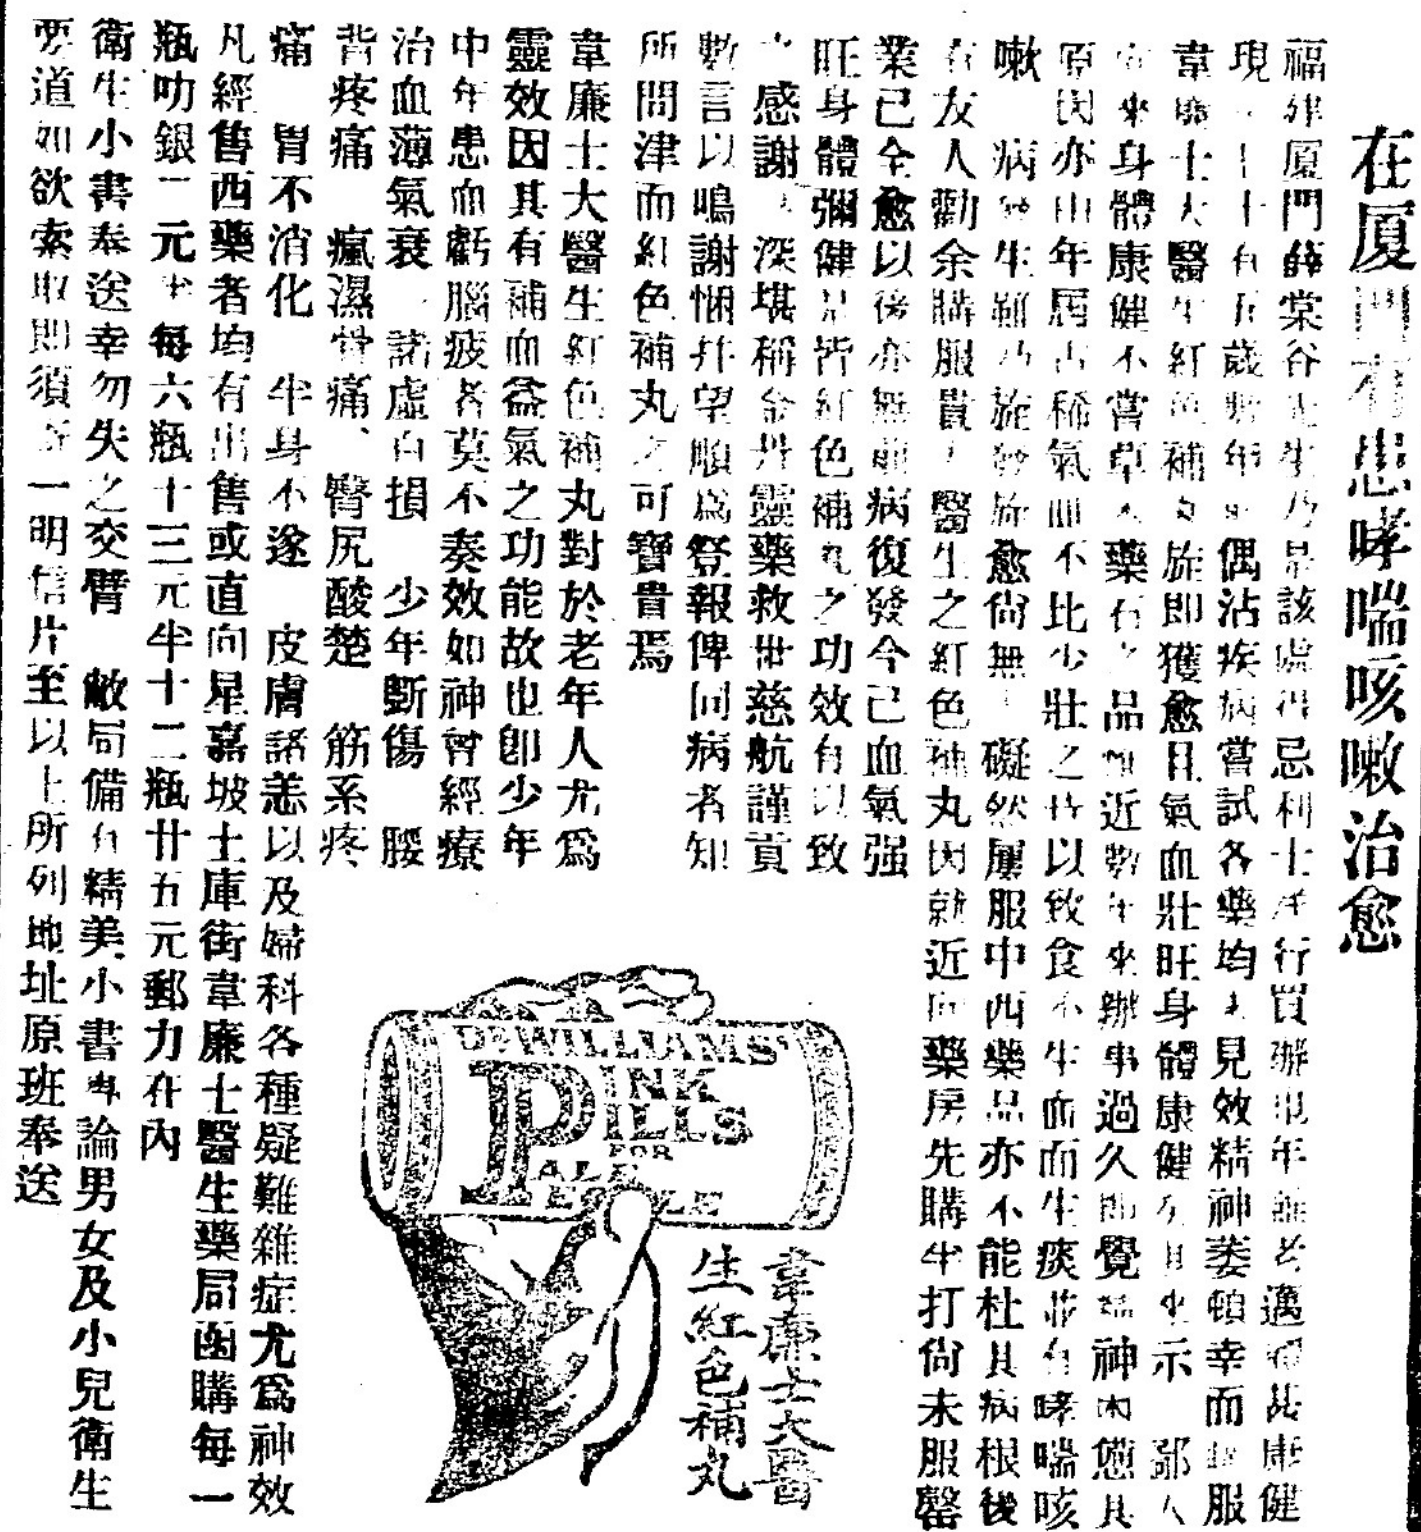 在厦門有患哮喘咳嗽治愈
福建厦門薛棠谷先生乃是該處得忌利士洋行買辦現年雖老邁身甚康健
現 十有五歲 年 偶沾疾病嘗試各藥均未見效精神萎頓幸而 服
韋廉士大醫生紅色補丸旋即獲愈且氣血壯旺身體康健 其來示 鄙人
向來身體康健不嘗草木藥石之品 近數年來辦事過久即覺精神困憊其
原因亦由年屆古稀氣血不比少壯之 以致食不生血而生痰並有哮喘咳
嗽 病 生 乃旋發旋愈尙無 礙然屢服中西藥品亦不能杜其病根後
有友人勸余購服貴大醫生之紅色補丸因就近向藥房先購半打尙未服罄
業已全愈以後亦無前病復發今已血氣强
旺身體彌健是皆紅色補丸之功效有以致
之感謝 深堪稱金丹靈藥救世慈航謹貢
數言以鳴謝悃并望順爲登報俾同病者知
所問津而紅色補丸之可寶貴焉
韋廉士大醫生紅色補丸對於老年人尤爲
靈效因其有補血益氣之功能故也卽少年
中年患血虧腦疲者莫不奏效如神曾經療
治血薄氣衰 諸虛百損 少年斲傷 腰
背疼痛 瘋濕骨痛、臀尻酸楚 筋系疼
痛 胃不消化 半身不遂 皮膚諸恙以及婦科各種疑難雜症尤爲神效
凡經售西藥者均有出售或直向星嘉坡士庫街韋廉士醫生藥局函購每一
瓶叻銀二元半每六瓶十三元半十二瓶廿五元郵力在內
衛生小書奉送幸勿失之交臂 敝局備有精美小書專論男女及小兒衛生
要道如欲索取即須寄一明信片至以上所列地址原班奉送
DR WILLIAMS'
PINK
PILLS
FOR
PALE
PEOPLE
韋廉士大醫
生紅色補丸